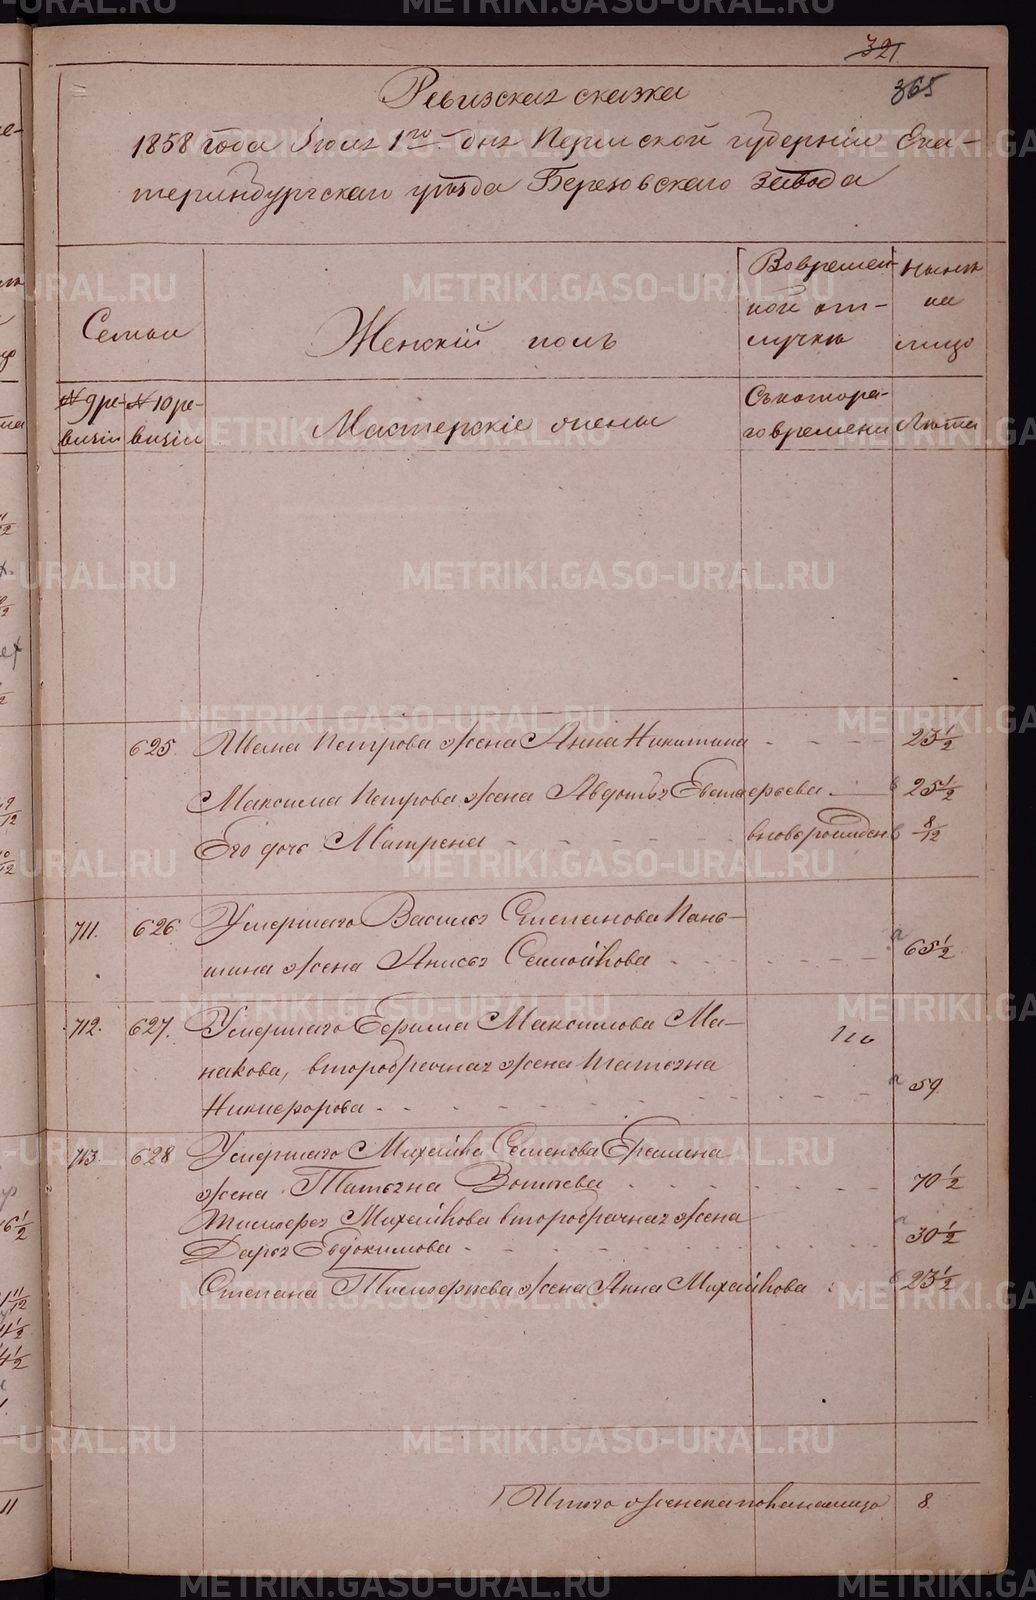 321
365
Ревизская сказка
1858 года Июля 1го дня Пермской губернiи Ека-
теринбургскаго уѣзда Березовскаго завода
Семьи
Женскiй полъ
Во времен-
ной от-
лучкѣ
Нынѣ
на
лицо
№ 9 ре-
визiи
№ 10 ре-
визiи
Мастерскiе жены
Съ котора-
го времени
Лѣта
625. Ивана Петрова жена Анна Никитина 23 1/2
Максима Петрова жена Авдотья Евстафьева 25 1/2
Его дочь Матрена вновьрожден 8/12
711. 626 Умершаго Василья Степанова Пань-
шина жена Анисья Самойлова 65 1/2
712. 627. Умершаго Ефима Максимова Ма-
накова, второбрачная жена Татьяна
Никифорова 59
713. 628 Умершаго Михайла Семенова Еремина
жена Татьяна Зотьева 70 1/2
Тимофея Михайлова второбрачная жена
Дарья Евдокимова 30 1/2
Степана Тимофеева жена Анна Михайлова 23 1/2
Итого женска пола налицо 8
METRIKI.GASO-URAL.RU